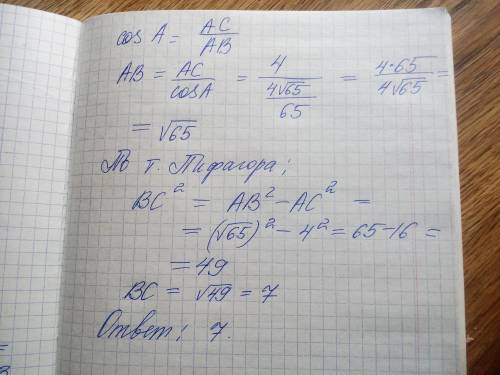 cos A = AC/AB
AB = AC/cosA = 4/(4√65/65) = 4·65/4√65 =
= √65
По т. Пифагора;
BC² = AB² − AC² =
= (√65)² − 4² = 65 − 16 =
= 49
BC = √49 = 7
Ответ; 7.